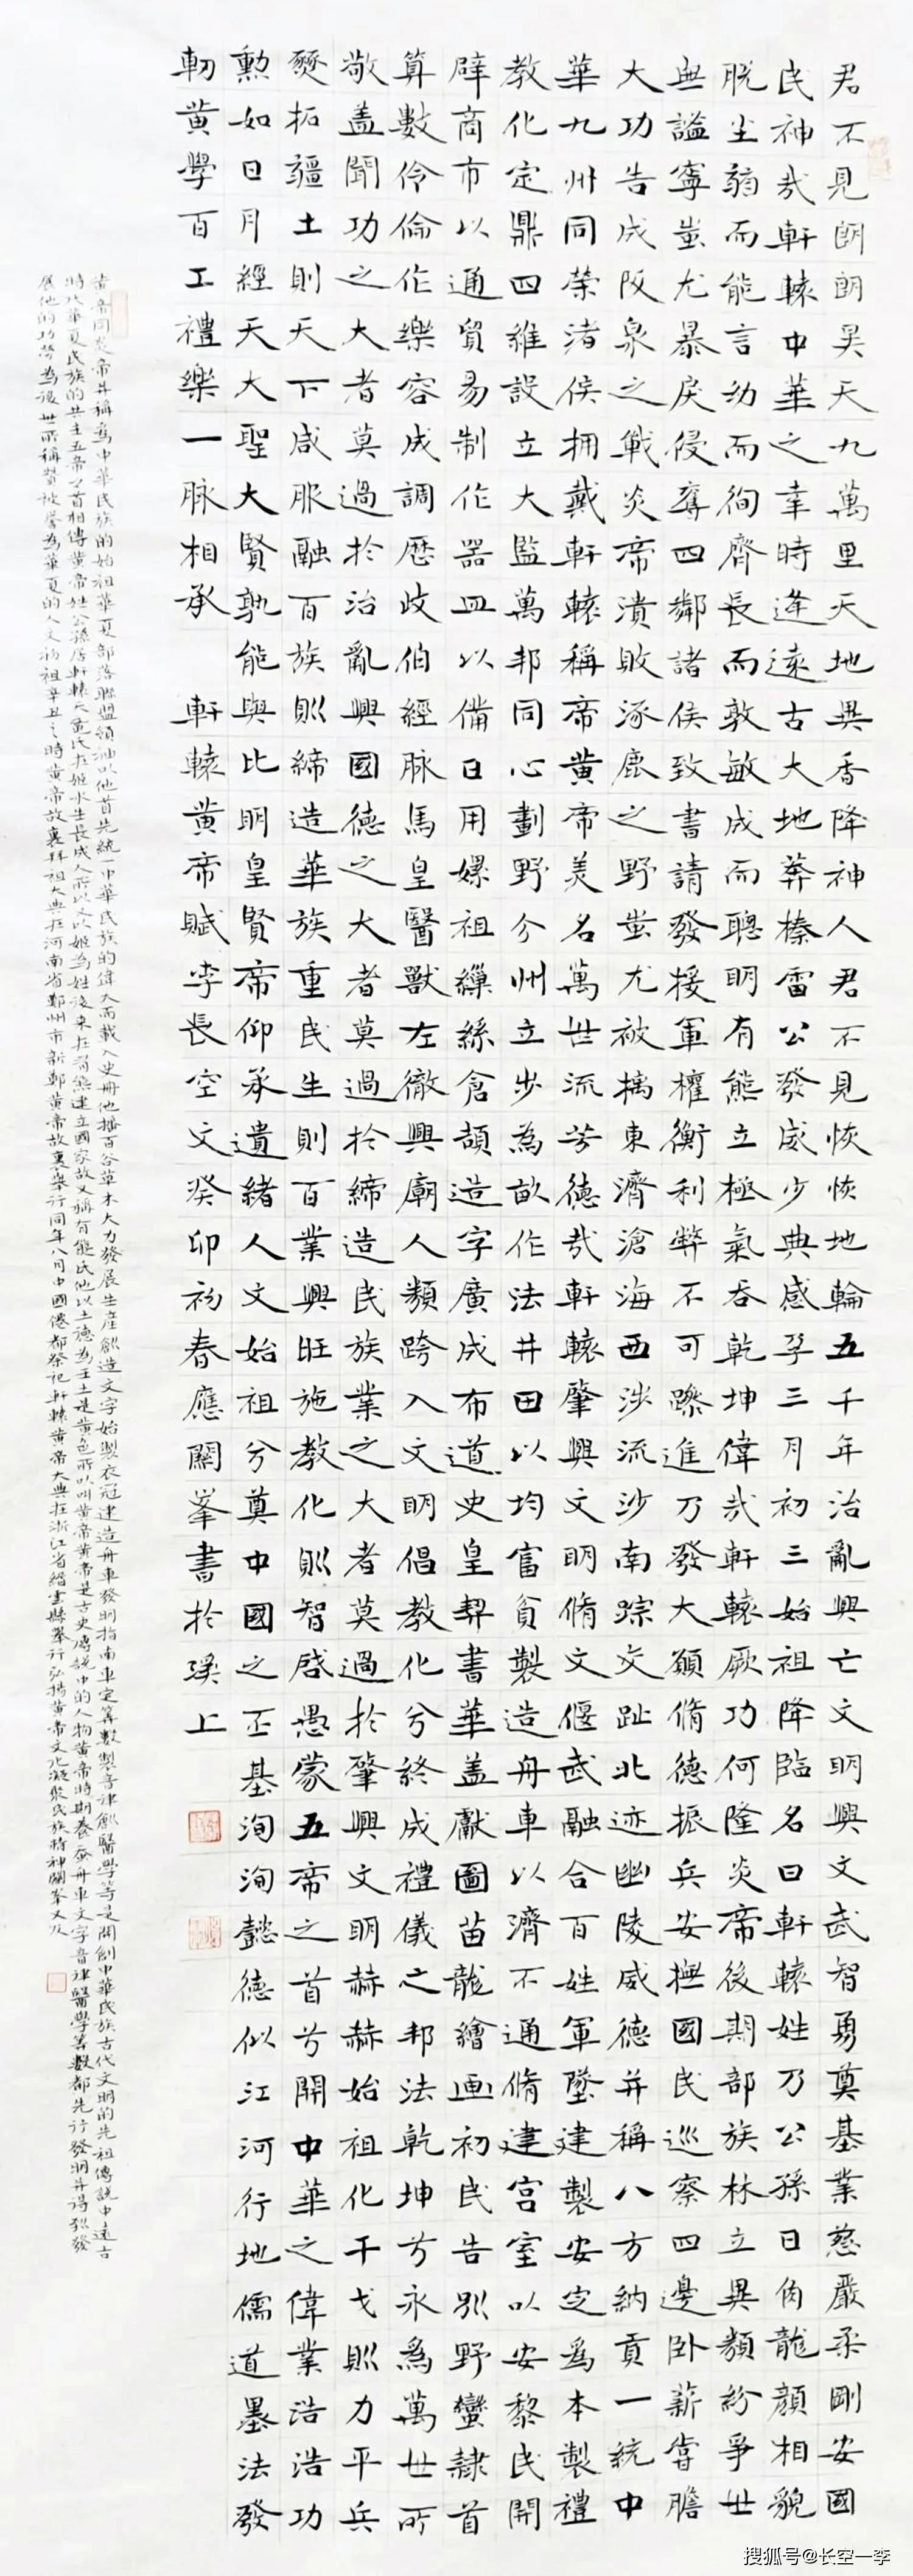 君不見朗朗昊天九萬里天地異香降神人君不見恢恢地輪五千年治亂興亡文明興文武智勇奠基業慈嚴柔剛安國
民神哉軒轅中華之幸時逢遠古大地莽榛雷公發威少典感孕三月初三始祖降臨名曰軒轅姓乃公孫日角龍顏相貌
脱尘弱而能言幼而徇齊長而敦敏成而聰明有熊立極氣吞乾坤偉哉軒轅厥功何隆炎帝後期部族林立異類紛爭世
無謐寧蚩尤暴戾侵奪四鄰諸侯致書請發援軍權衡利弊不可躁進乃發大願脩德振兵安撫國民巡察四邊卧薪嘗膽
大功告成阪泉之戰炎帝潰敗涿鹿之野蚩尤被擒東濟滄海西涉流沙南踪交趾北迹幽陵威德并稱八方納貢一統中
華九州同榮渚侯拥戴軒轅稱帝黄帝美名萬世流芳德哉軒轅肇興文明脩文偃武融合百姓軍墜建製安定為本製禮
教化定鼎四維設立大監萬邦同心劃野分州立步為畝作法井田以均富貧製造舟車以濟不通脩建宫室以安黎民開
辟商市以通貿易制作器皿以備日用嫘祖繅絲倉頡造字廣成布道史皇栔書華盖獻圖苗龍繪画初民告别野蠻隸首
算數伶倫作樂容成調曆歧伯經脉馬皇醫獸左徹興廟人類跨入文明倡教化兮終成禮儀之邦法乾坤兮永爲萬世所
敬盖聞功之大者莫過於治亂興國德之大者莫過於締造民族業之大者莫過於肇興文明赫赫始祖化干戈则力平兵
燹拓疆土則天下咸服融百族则締造華族重民生則百業興旺施教化则智啓愚蒙五帝之首兮開中華之偉業浩浩功
勲如日月經天大聖大賢孰能與比明皇賢帝仰承遺緒人文始祖兮奠中國之丕基洵洵懿德似江河行地儒道墨法發
軔黄學百工禮樂一脉相承 軒轅黄帝賦李長空文癸卯初春應關峯書於上
黄帝同炎帝并稱為中華民族的始祖華夏部落聯盟領袖以他首先統一中華民族的偉大而載入史冊他播百谷草木大力發展生産創造文字始製衣冠建造舟車發明指南車定算數製音律創醫學等是開創中華民族古代文明的先祖傳說中遠古
時代華夏民族的共主五帝之首相傳黄帝姓公孫居軒轅丘在姬水生長成人所以又以姬為姓後來在有熊建立國家故又稱有熊氏他以土德為王土是黄色所以叫黄帝黄帝是古史傳說中的人物黄帝時期養蚕舟車文字音律醫學算數都先行發明并得到發
展他的功勞為後世所稱贊被譽為華夏的人文初祖辛丑之時黄帝故裏拜祖大典在河南省鄭州市新鄭黄帝故裏舉行同年八月中國僊都祭祀軒轅黄帝大典在浙江省縉雲縣舉行弘揚黄帝文化凝聚民族精神關峯又及
搜狐号@长空一李